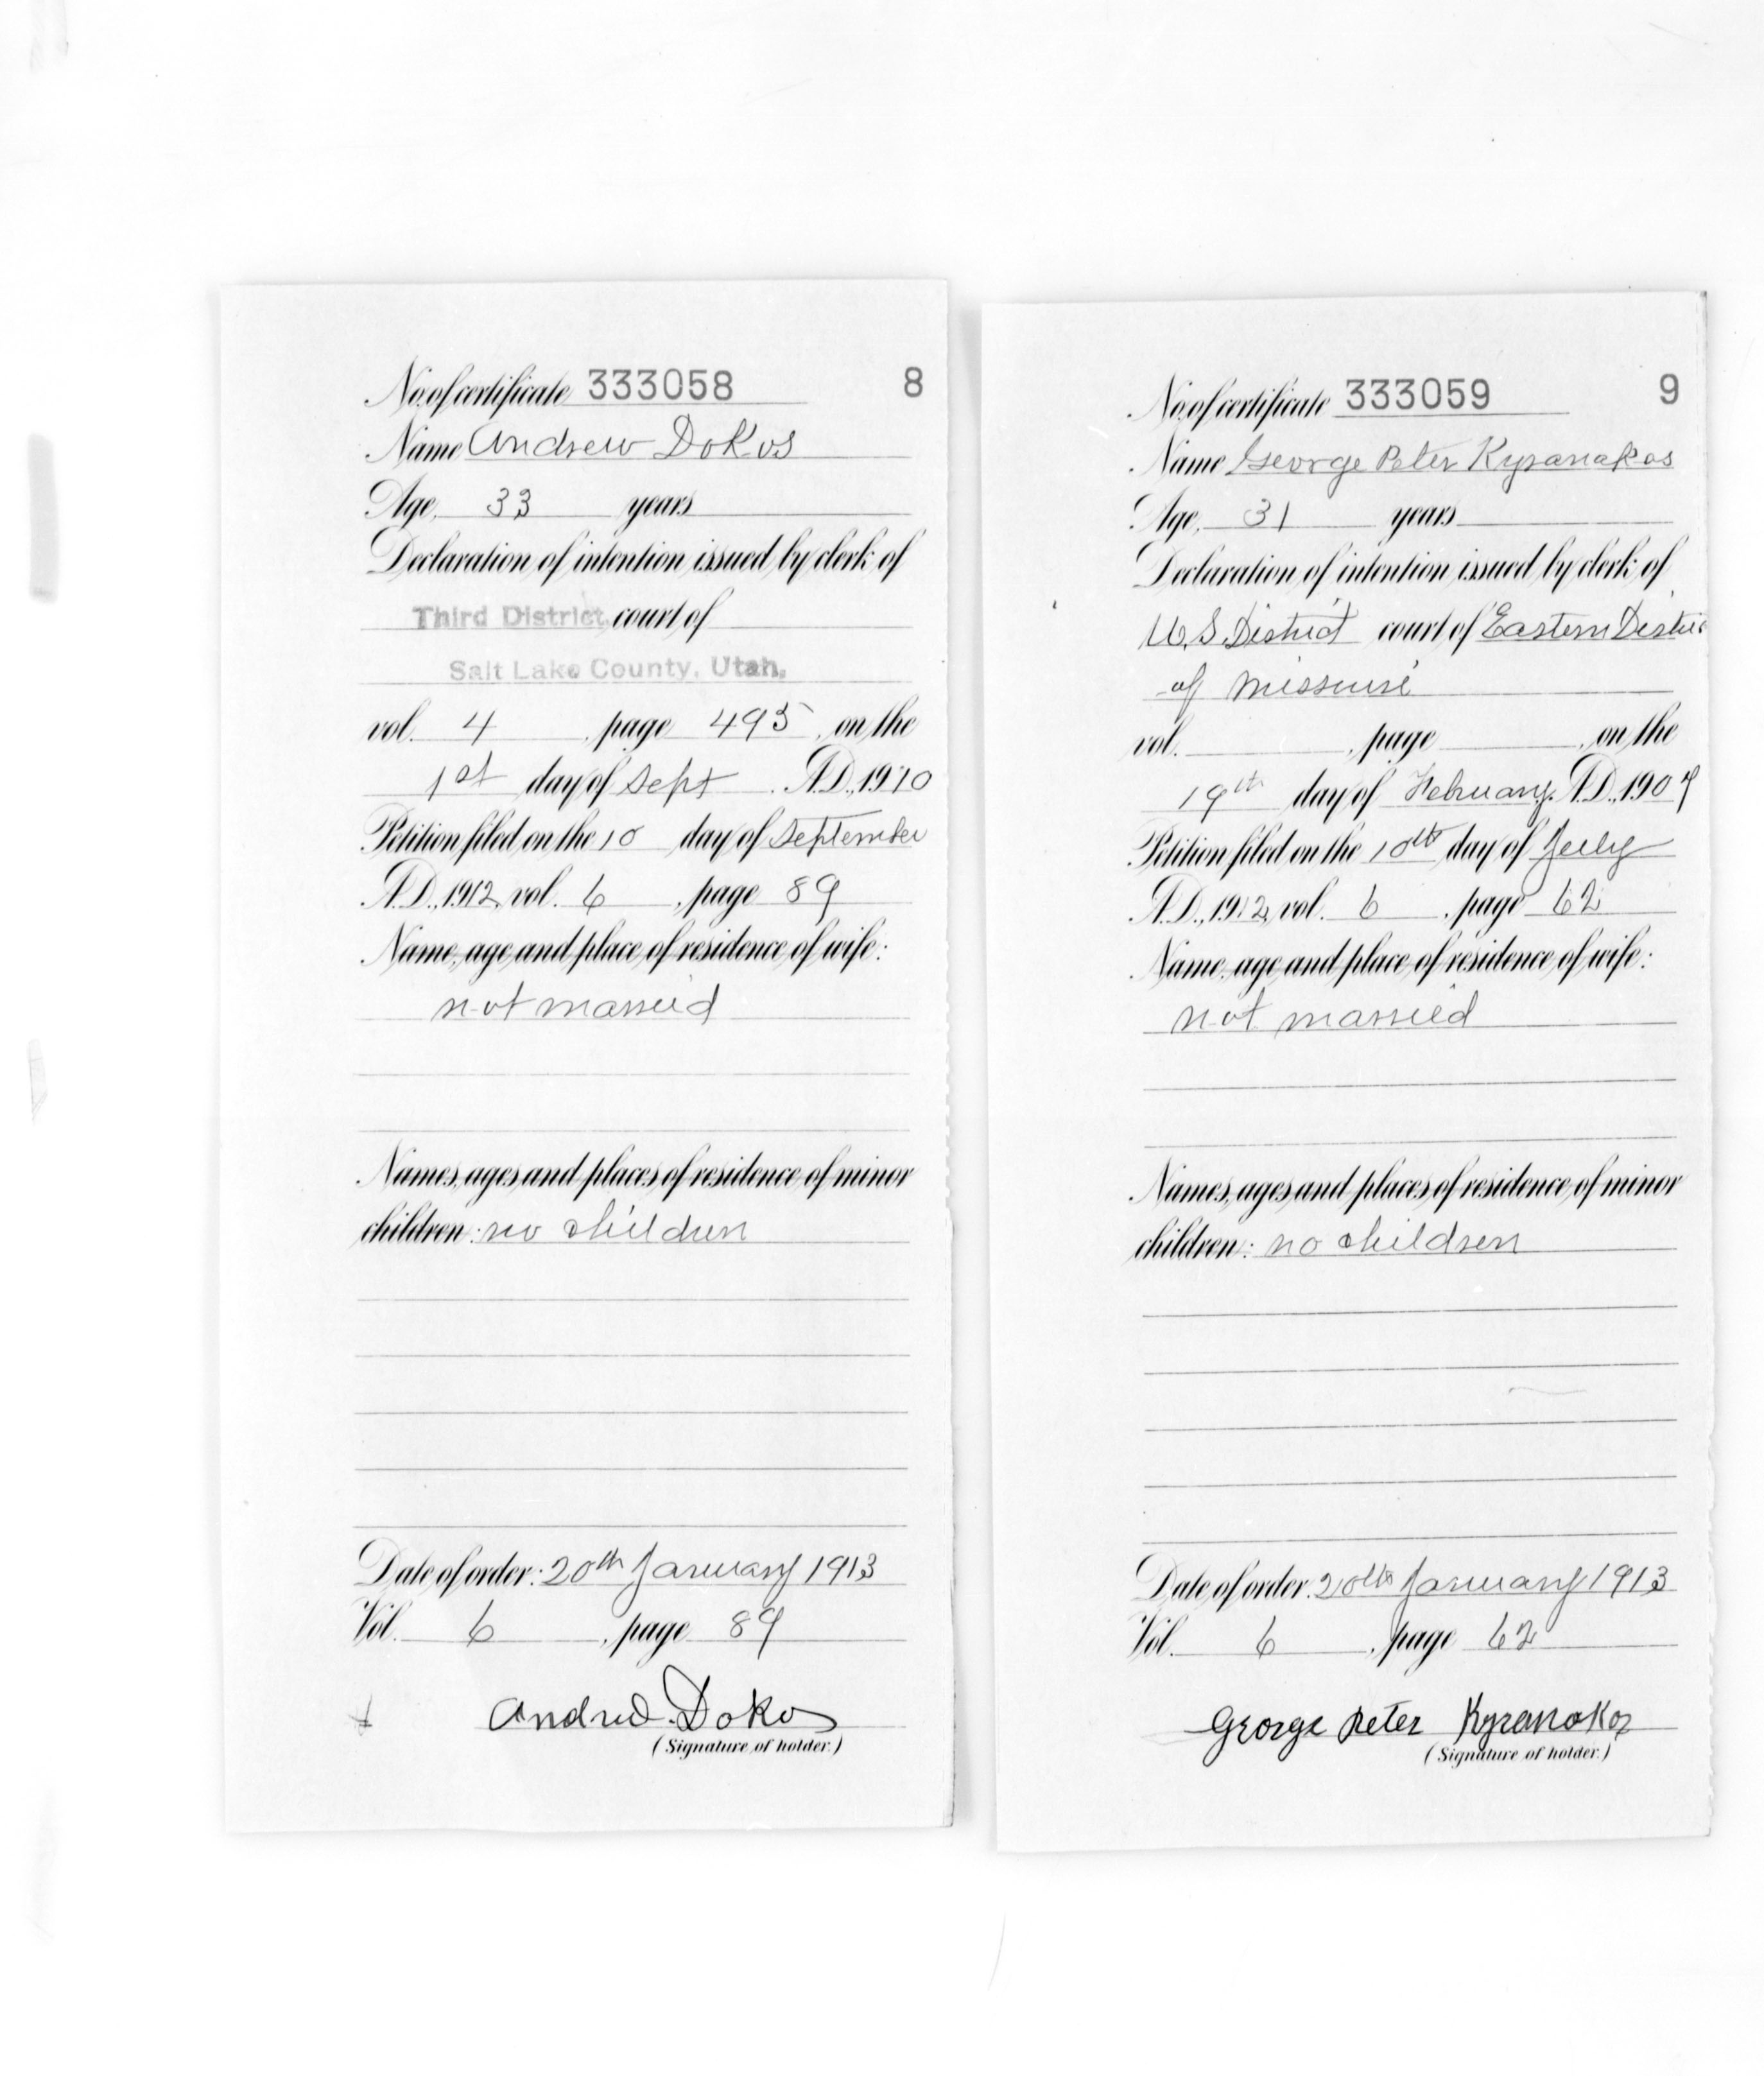 No. of certificate 333058 8
Name Andrew Dokos
Age, 33 years
Declaration of intention issued by clerk of
Third District court of
Salt Lake County, Utah.
vol. 4, page 495, on the
1st day of Sept. A.D., 1910
Petition filed on the 10 day of September
A.D., 1912, vol. 6, page 89
Name, age and place of residence of wife:
not married
Names, ages and places of residence of minor
children: no children
Date of order: 20th January 1913
Vol. 6, page 89
Andrew Dokos
(Signature of holder.)
No. of certificate 333059 9
Name George Peter Kyranakos
Age, 31 years
Declaration of intention issued by clerk of
U.S. District court of Eastern Distric
of Missouri
vol. , page , on the
19th day of February, A.D., 1907
Petition filed on the 10th day of July
A.D., 1912, vol. 6, page 62
Name, age and place of residence of wife:
not married
Names, ages and places of residence of minor
children: no children
Date of order: 20th January 1913
Vol. 6, page 62
George Peter Kyranakos
(Signature of holder.)